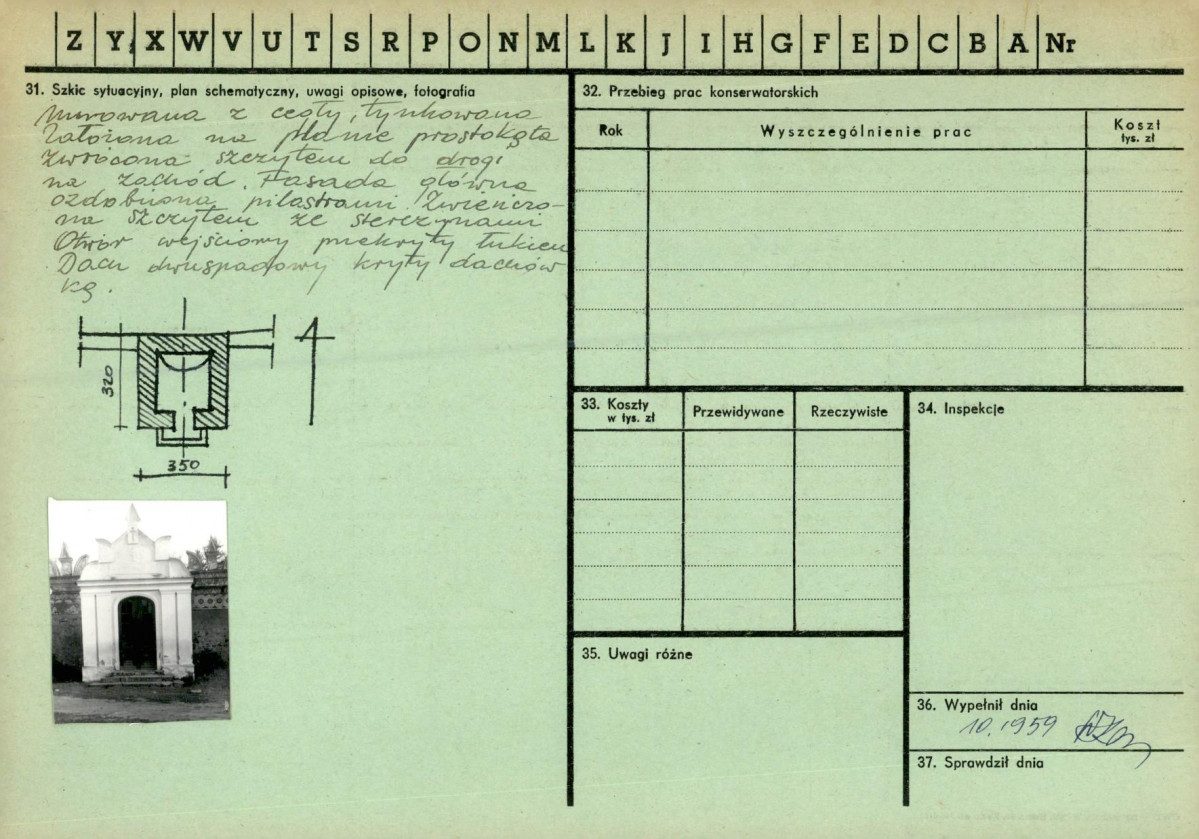 Z Y X W V U T S R P O N M L K J I H G F E D C B A Nr
31. Szkic sytuacyjny, plan schematyczny, uwagi opisowe, fotografia
Murowana z cegły, tynkowana
Założona na planie prostokąta
Zwrócona szczytem do drogi
na zachód. Fasada główna
ozdobiona pilastrami. Zwieńczo-
na szczytem ze sterczynami
Otwór wejściowy przekryty łukiem
Dach dwuspadowy kryty dachów
ką.
320
350
32. Przebieg prac konserwatorskich
Rok
Wyszczególnienie prac
Koszt
tys. zł
33. Koszty
w tys. zł
Przewidywane
Rzeczywiste
34. Inspekcje
35. Uwagi różne
36. Wypełnił dnia
10.1959
37. Sprawdził dnia